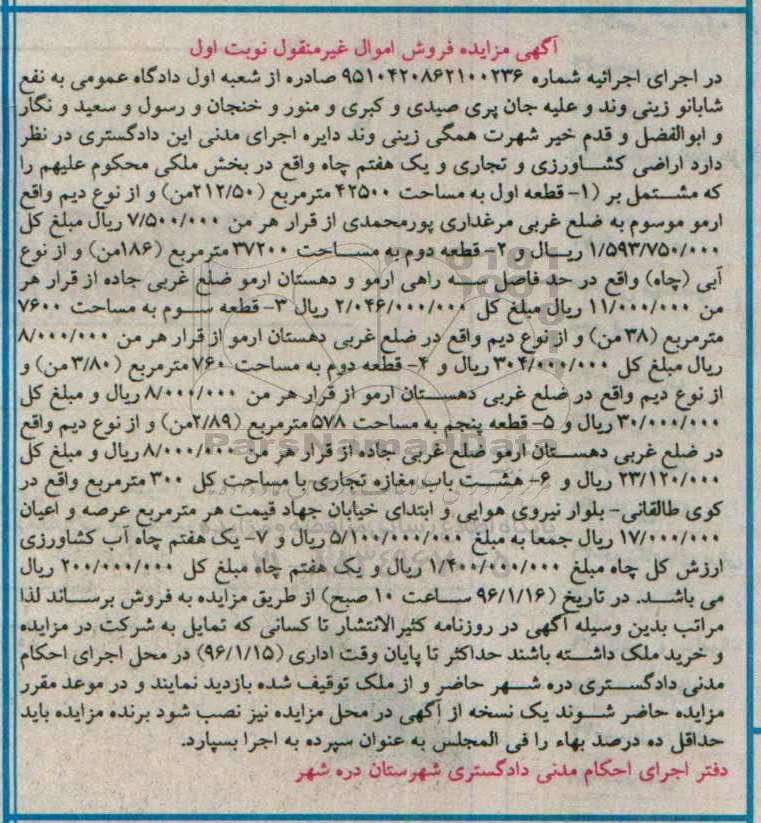 آگهی مزایده فروش اموال غیرمنقول نوبت اول
در اجرای اجرائیه شماره ۹۵۱۰۴۲۰۸۶۲۱۰۰۲۳۶ صادره از شعبه اول دادگاه عمومی به نفع
شابانو زینی وند و علیه جان پری صیدی و کبری و منور و خنجان و رسول و سعید و نگار
و ابوالفضل و قدم خیر شهرت همگی زینی وند دایره اجرای مدنی این دادگستری در نظر
دارد اراضی کشاورزی و تجاری و یک هفتم چاه واقع در بخش ملکی محکوم علیهم را
که مشتمل بر (۱- قطعه اول به مساحت ۴۲۵۰۰ مترمربع (۲۱۲/۵۰من) و از نوع دیم واقع
ارمو موسوم به ضلع غربی مرغداری پورمحمدی از قرار هر من ۷/۵۰۰/۰۰۰ ریال مبلغ کل
۱/۵۹۳/۷۵۰/۰۰۰ ریال و ۲- قطعه دوم به مساحت ۳۷۲۰۰ مترمربع (۱۸۶من) و از نوع
آبی (چاه) واقع در حد فاصل سه راهی ارمو و دهستان ارمو ضلع غربی جاده از قرار هر
من ۱۱/۰۰۰/۰۰۰ ریال مبلغ کل ۲/۰۴۶/۰۰۰/۰۰۰ ریال ۳- قطعه سوم به مساحت ۷۶۰۰
مترمربع (۳۸ من) و از نوع دیم واقع در ضلع غربی دهستان ارمو از قرار هر من ۸/۰۰۰/۰۰۰
ریال مبلغ کل ۳۰۴/۰۰۰/۰۰۰ ریال و ۴- قطعه دوم به مساحت ۷۶۰ مترمربع (۳/۸۰ من) و
از نوع دیم واقع در ضلع غربی دهستان ارمو از قرار هر من ۸/۰۰۰/۰۰۰ ریال و مبلغ کل
۳۰/۰۰۰/۰۰۰ ریال و ۵- قطعه پنجم به مساحت ۵۷۸ مترمربع (۲/۸۹من) و از نوع دیم واقع
در ضلع غربی دهستان ارمو ضلع غربی جاده از قرار هر من ۸/۰۰۰/۰۰۰ ریال و مبلغ کل
۲۳/۱۲۰/۰۰۰ ریال و ۶- هشت باب مغازه تجاری با مساحت کل ۳۰۰ مترمربع واقع در
کوی طالقانی- بلوار نیروی هوایی و ابتدای خیابان جهاد قیمت هر مترمربع عرصه و اعیان
۱۷/۰۰۰/۰۰۰ ریال جمعا به مبلغ ۵/۱۰۰/۰۰۰/۰۰۰ ریال و ۷- یک هفتم چاه آب کشاورزی
ارزش کل چاه مبلغ ۱/۴۰۰/۰۰۰/۰۰۰ ریال و یک هفتم چاه مبلغ کل ۲۰۰/۰۰۰/۰۰۰ ریال
می باشد. در تاریخ (۹۶/۱/۱۶ ساعت ۱۰ صبح) از طریق مزایده به فروش برساند لذا
مراتب بدین وسیله آگهی در روزنامه کثیرالانتشار تا کسانی که تمایل به شرکت در مزایده
و خرید ملک داشته باشند حداکثر تا پایان وقت اداری (۹۶/۱/۱۵) در محل اجرای احکام
مدنی دادگستری دره شهر حاضر و از ملک توقیف شده بازدید نمایند و در موعد مقرر
مزایده حاضر شوند یک نسخه از آگهی در محل مزایده نیز نصب شود برنده مزایده باید
حداقل ده درصد بهاء را فی المجلس به عنوان سپرده به اجرا بسپارد.
دفتر اجرای احکام مدنی دادگستری شهرستان دره شهر
ParsNamadData